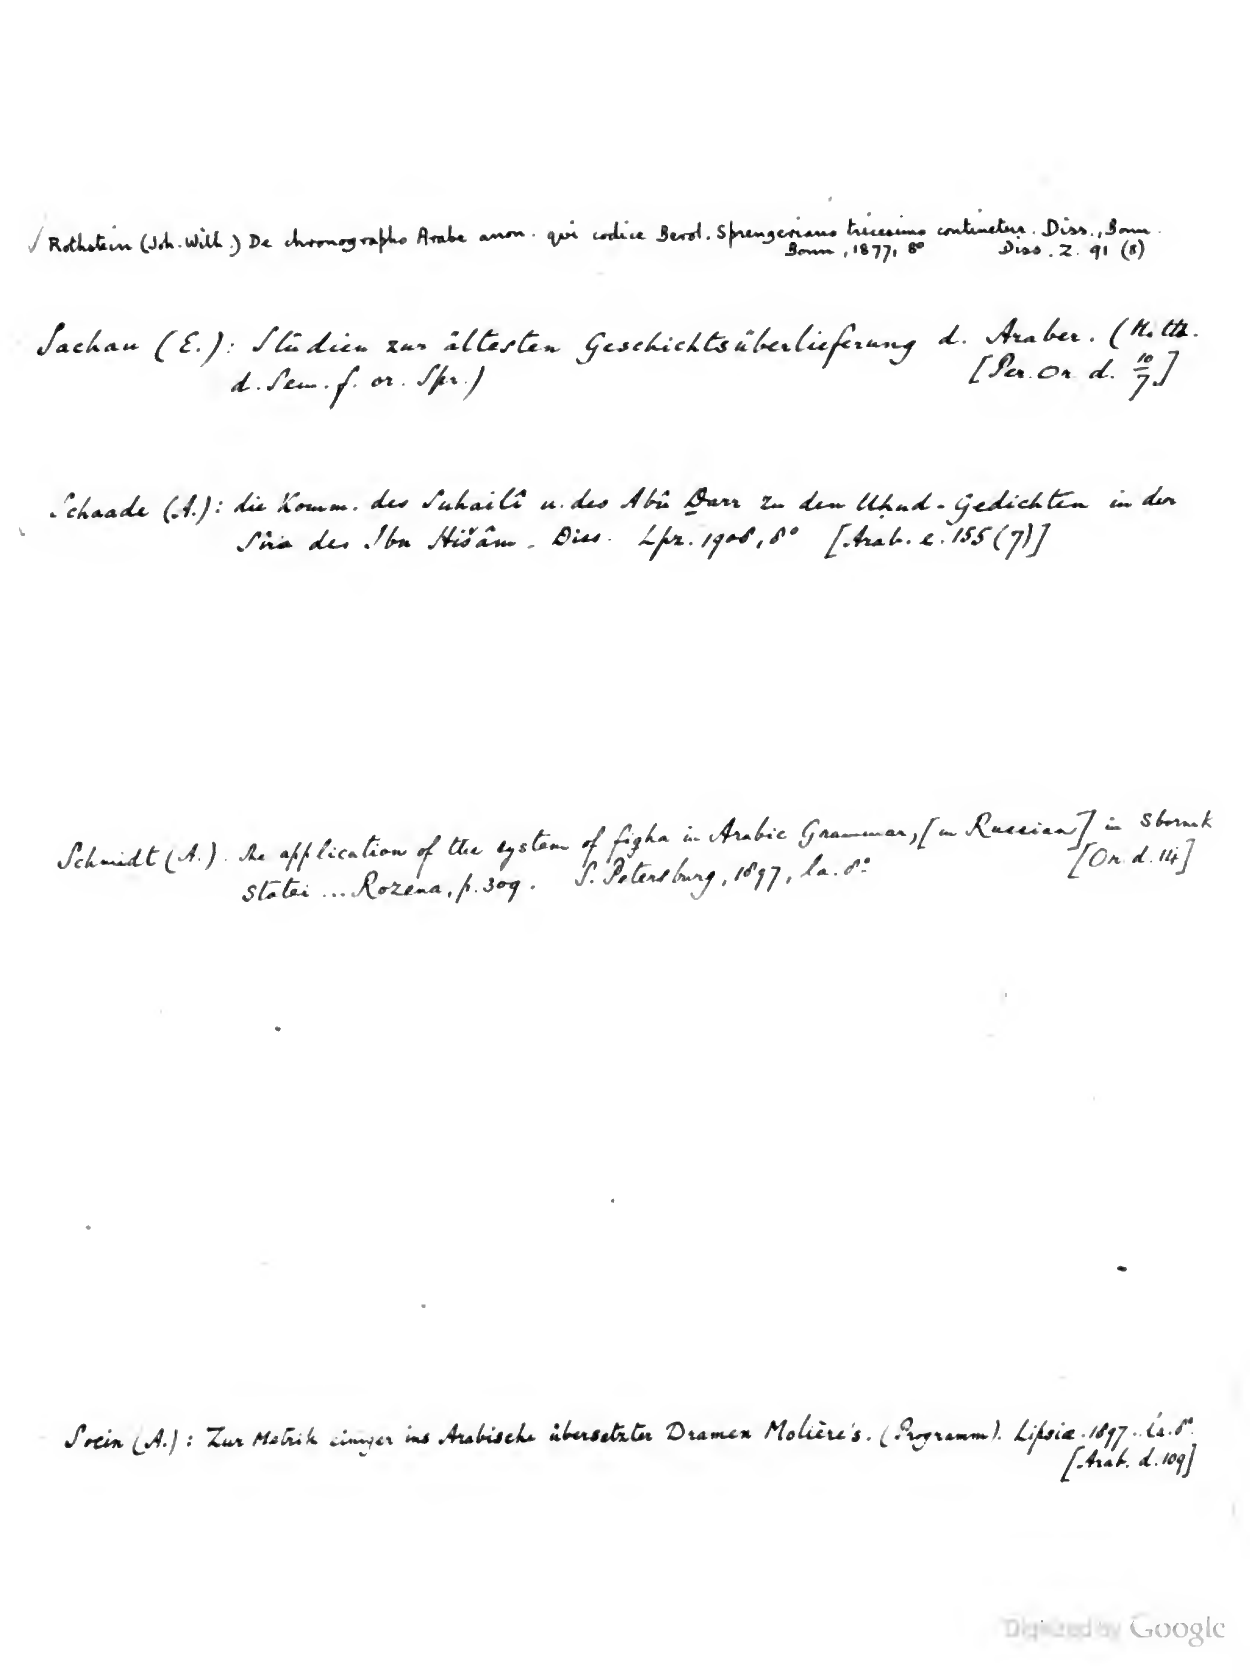 ✓ Rothstein (Joh. Wilh.) De chronographo Arabe anon. qui codice Berol. Sprengeriano tricesimo continetur. Diss., Bonn.
Bonn, 1877, 8° Diss. Z. 91 (8)
Sachau (E.): Studien zur ältesten Geschichtsüberlieferung d. Araber. (Mitth.
d. Sem. f. or. Spr.) [Per. Or. d. 10/7.]
Schaade (A.): die Komm. des Suhailî u. des Abû Ḏarr zu den Uḥud-Gedichten in der
Sîra des Ibn Hišâm. Diss. Lpz. 1908, 8° [Arab. e. 155 (7)]
Schmidt (A.). The application of the system of fiqha in Arabic Grammar, [in Russian] in Sbornik
Statei ... Rozena, p. 309. S. Petersburg, 1897, la. 8°. [Or. d. 14]
Socin (A.): Zur Metrik einiger ins Arabische übersetzter Dramen Molière's. (Programm). Lipsiæ. 1897. La. 8°.
[Arab. d. 109]
Digitized by Google